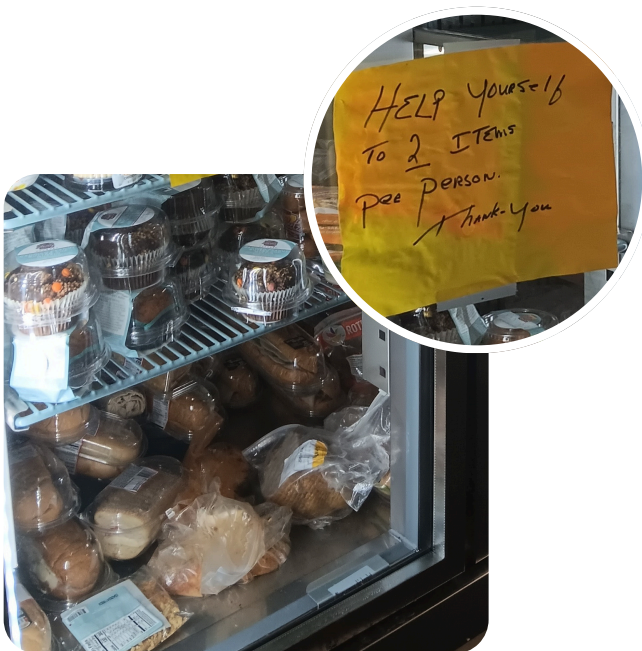 HELP YOURSElf
To 2 ITEMS
PER PERSON.
THANK-YOU
ROT